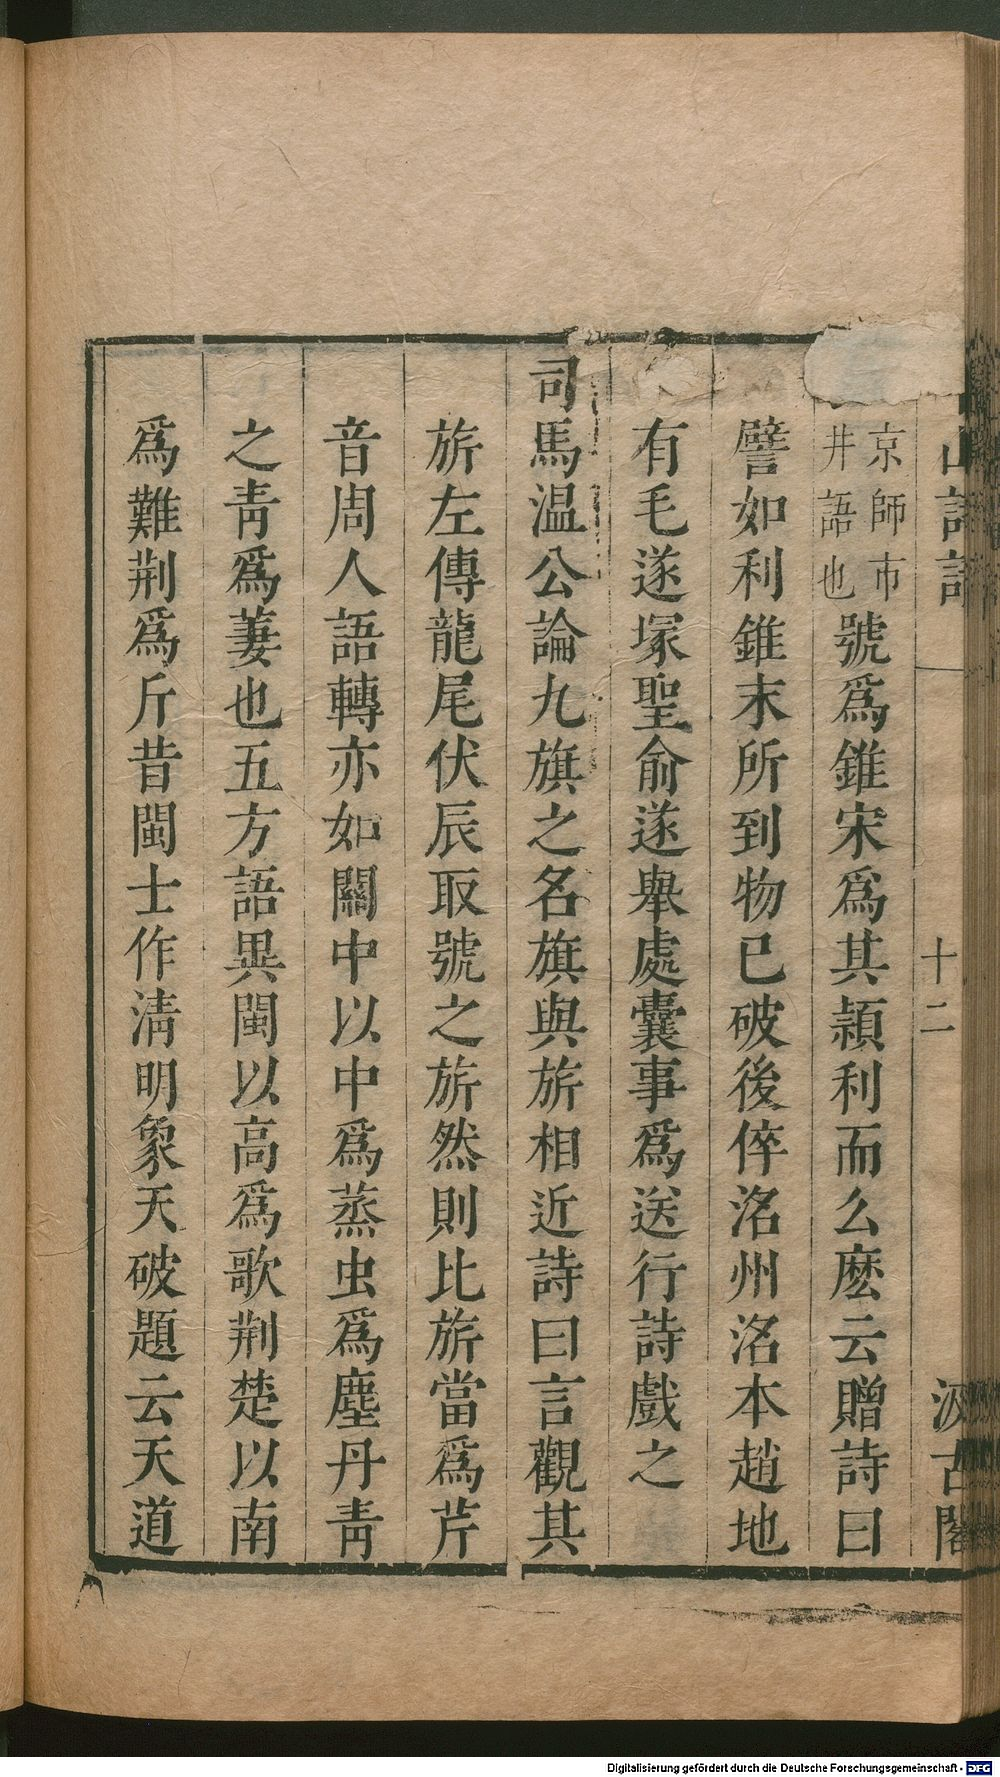 京師市
井語也
號爲錐宋爲其頴利而么麽云贈詩曰
譬如利錐末所到物已破後倅洺州洺本趙地
有毛遂塚聖俞遂舉處囊事爲送行詩戲之
司馬温公論九旗之名旗與旂相近詩曰言觀其
旂左傳龍尾伏辰取號之旂然則比旂當爲芹
音周人語轉亦如關中以中爲蒸虫爲塵丹靑
之靑爲萋也五方語異閩以高爲歌荆楚以南
爲難荆爲斤昔閩士作淸明象天破題云天道
十二
汲古閣
Digitalisierung gefördert durch die Deutsche Forschungsgemeinschaft - DFG